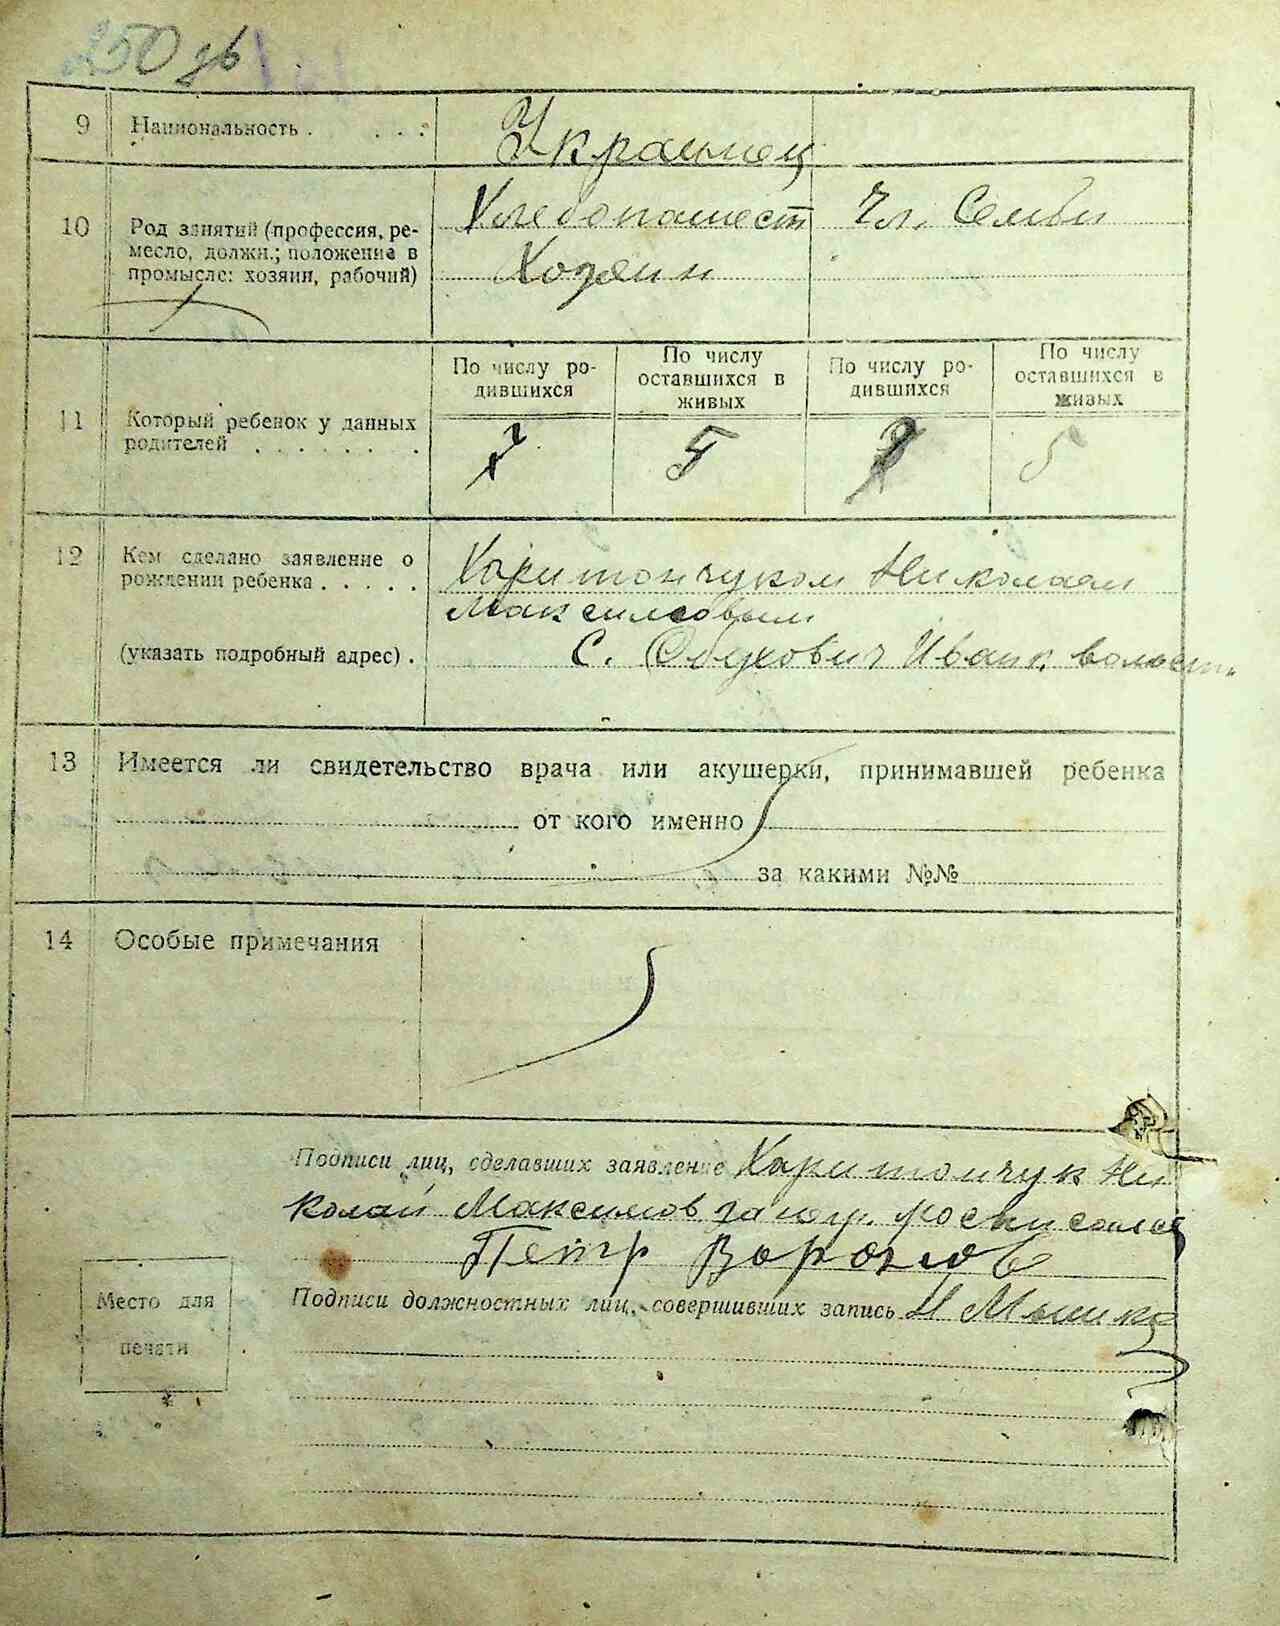 250 зв
9 Национальность . . . . Украинец
10 Род занятий (профессия, ре-
месло, должн.; положение в
промысле: хозяин, рабочий)
Хлебопашест
Хозяин
Чл. Семьи
11 Который ребенок у данных
родителей . . . . . . .
По числу ро-
дившихся
По числу
оставшихся в
живых
По числу ро-
дившихся
По числу
оставшихся в
живых
7 5 5
12 Кем сделано заявление о
рождении ребенка . . . . .
(указать подробный адрес) .
Харитончуком Николаем
Максимовым
С. Обухович Иванк. волост.
13 Имеется ли свидетельство врача или акушерки, принимавшей ребенка
от кого именно
за какими №№
14 Особые примечания
Подписи лиц, сделавших заявление Харитончук Ни
колай Максимов за негр. росписался
Петр
Подписи должностных лиц, совершивших запись
Место для
печати